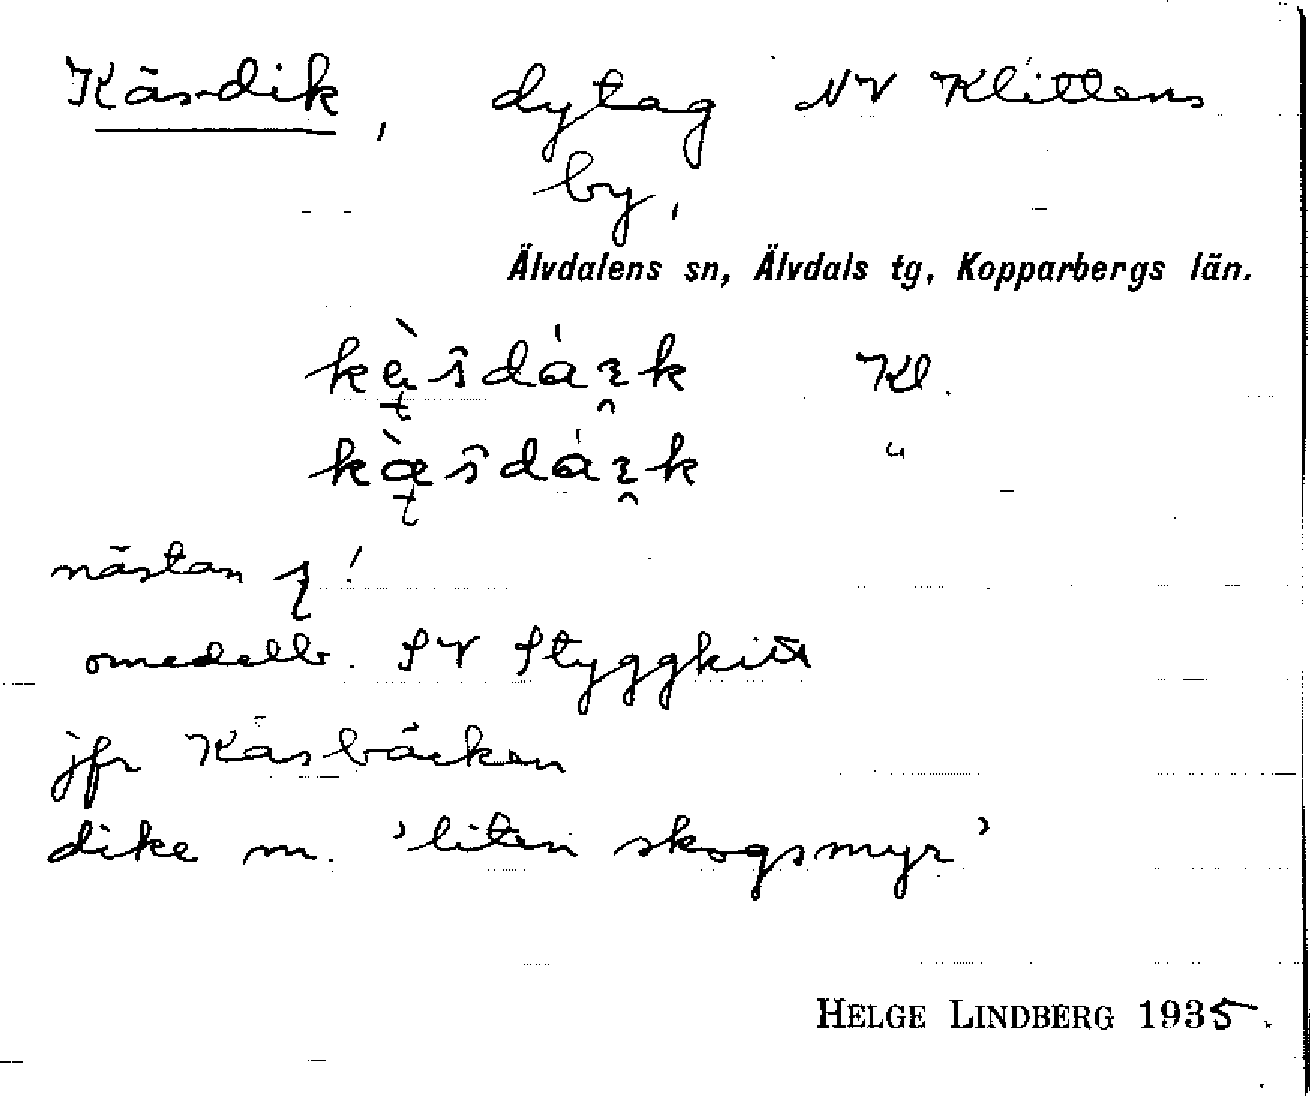 Käsdik, dytag NV Klittens
by,
Älvdalens sn, Älvdals tg, Kopparbergs län.
Kl.
"
nästan !
omedelb. SV Styggkitt
jfr Käsbäcken
dike m. 'liten skogsmyr'
HELGE LINDBERG 1935.